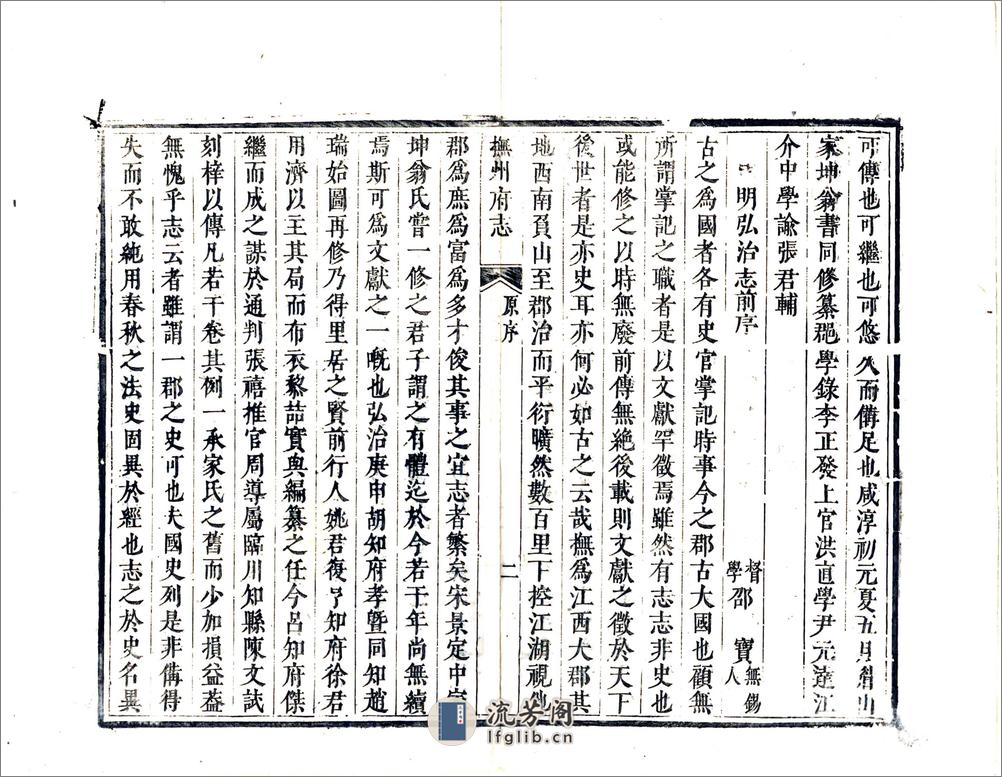 可傳也可繼也可悠久而備足也咸淳初元夏五月㬜山
家坤翁書同修纂郡學錄李正發上官洪直學尹元逵江
介中學諭張君輔
明弘治志前序
督學邵寶無錫人
古之為國者各有史官掌記時事今之郡古大國也顧無
所謂掌記之職者是以文獻罕徵焉雖然有志志非史也
或能修之以時無廢前傳無絕後載則文獻之徵於天下
後世者是亦史耳亦何必如古之云哉撫為江西大郡其
地西南負山至郡治而平衍曠然數百里下控江湖視他
撫州府志
原序
二
郡為庶為富為多才俊其事之宜志者繁矣宋景定中家
坤翁氏嘗一修之君子謂之有體迄於今若干年尚無續
焉斯可為文獻之一嘅也弘治庚申胡知府孝暨同知趙
瑞始圖再修乃得里居之賢前行人姚君復予知府徐君
用濟以主其局而布衣黎喆實與編纂之任今呂知府傑
繼而成之謀於通判張禧推官周導屬臨川知縣陳文試
刻梓以傳凡若干卷其例一承家氏之舊而少加損益蓋
無愧乎志云者雖謂一郡之史可也夫國史列是非備得
失而不敢純用春秋之法史固異於經也志之於史名異
流芳閣
lfglib.cn